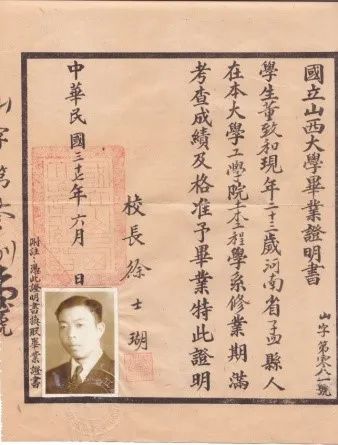 國立山西大學畢業證明書
學生董致和現年二十三歲河南省孟縣人
在本大學工學院土木工程學系修業期滿
考查成績及格准予畢業特此證明
校長徐士瑚
中華民國三十七年六月 日
附註：憑此證明書換取畢業證書
山字第零八一號
山字第